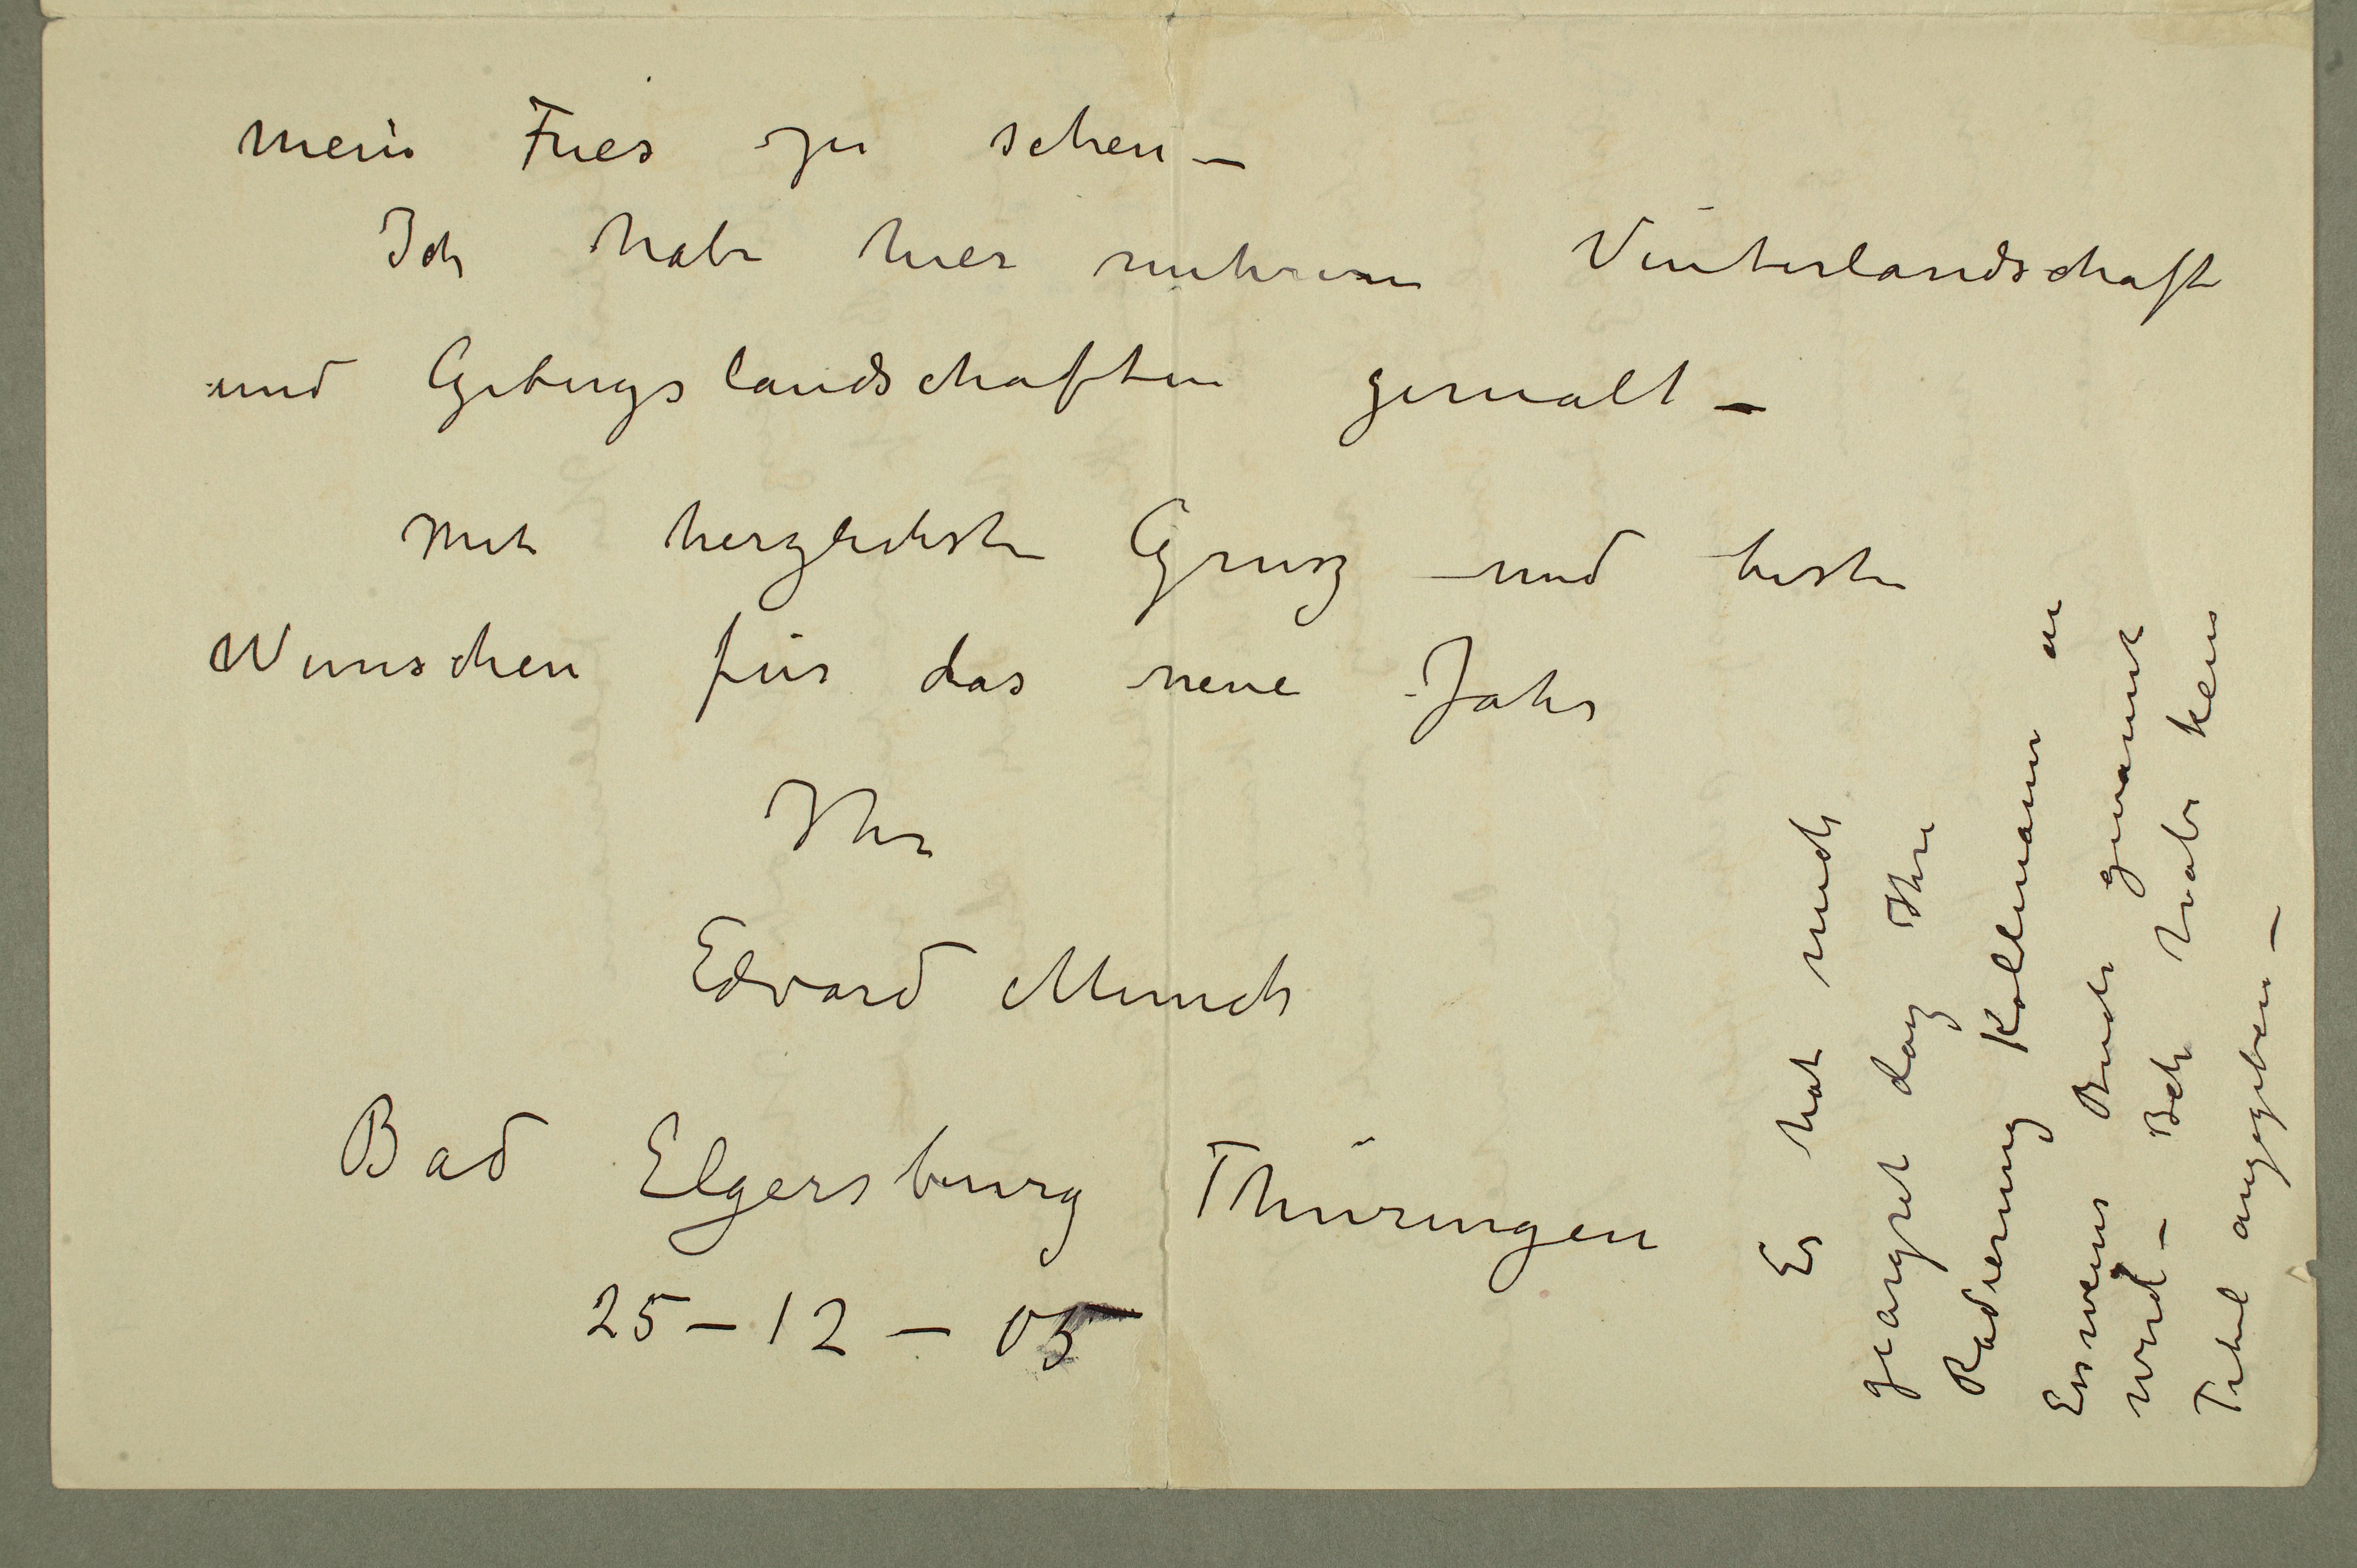 mein Fries zu sehen –
Ich habe hier mehrere Vinterlandschafte
und Gebirgslandschaften gemalt –
Mit herzlichste Grusz und beste
Wunschen für das neue Jahr
Ihr
Edvard Munch
Bad Elgersburg Thüringen
25 – 12 – 05
Es hat mich
geargret dasz Ihre
Radierung Kollmann in
Essweins Buch genannt
wird – Ich habe kein
Titel angegeben –